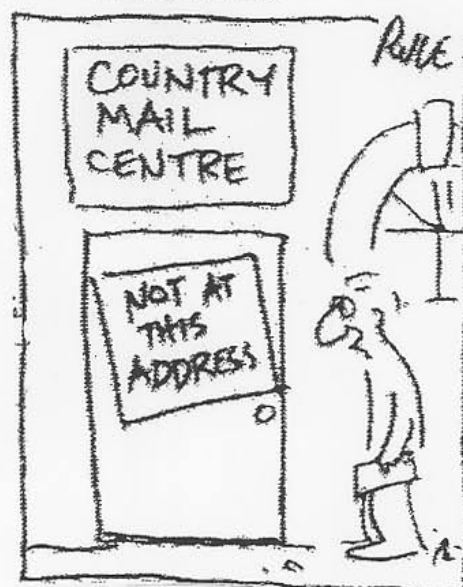 COUNTRY
MAIL
CENTRE
NOT AT
THIS
ADDRESS